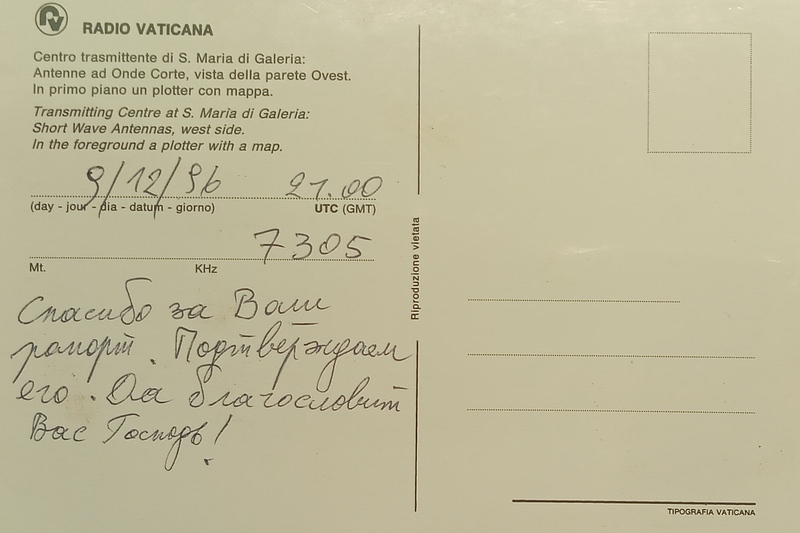 RADIO VATICANA
Centro trasmittente di S. Maria di Galeria:
Antenne ad Onde Corte, vista della parete Ovest.
In primo piano un plotter con mappa.
Transmitting Centre at S. Maria di Galeria:
Short Wave Antennas, west side.
In the foreground a plotter with a map.
9/12/96 21.00
(day - jour - dia - datum - giorno) UTC (GMT)
7305
Mt. KHz
Спасибо за Ваш
рапорт. Подтверждаем
его. Да благословит
Вас Господь!
Riproduzione vietata
TIPOGRAFIA VATICANA